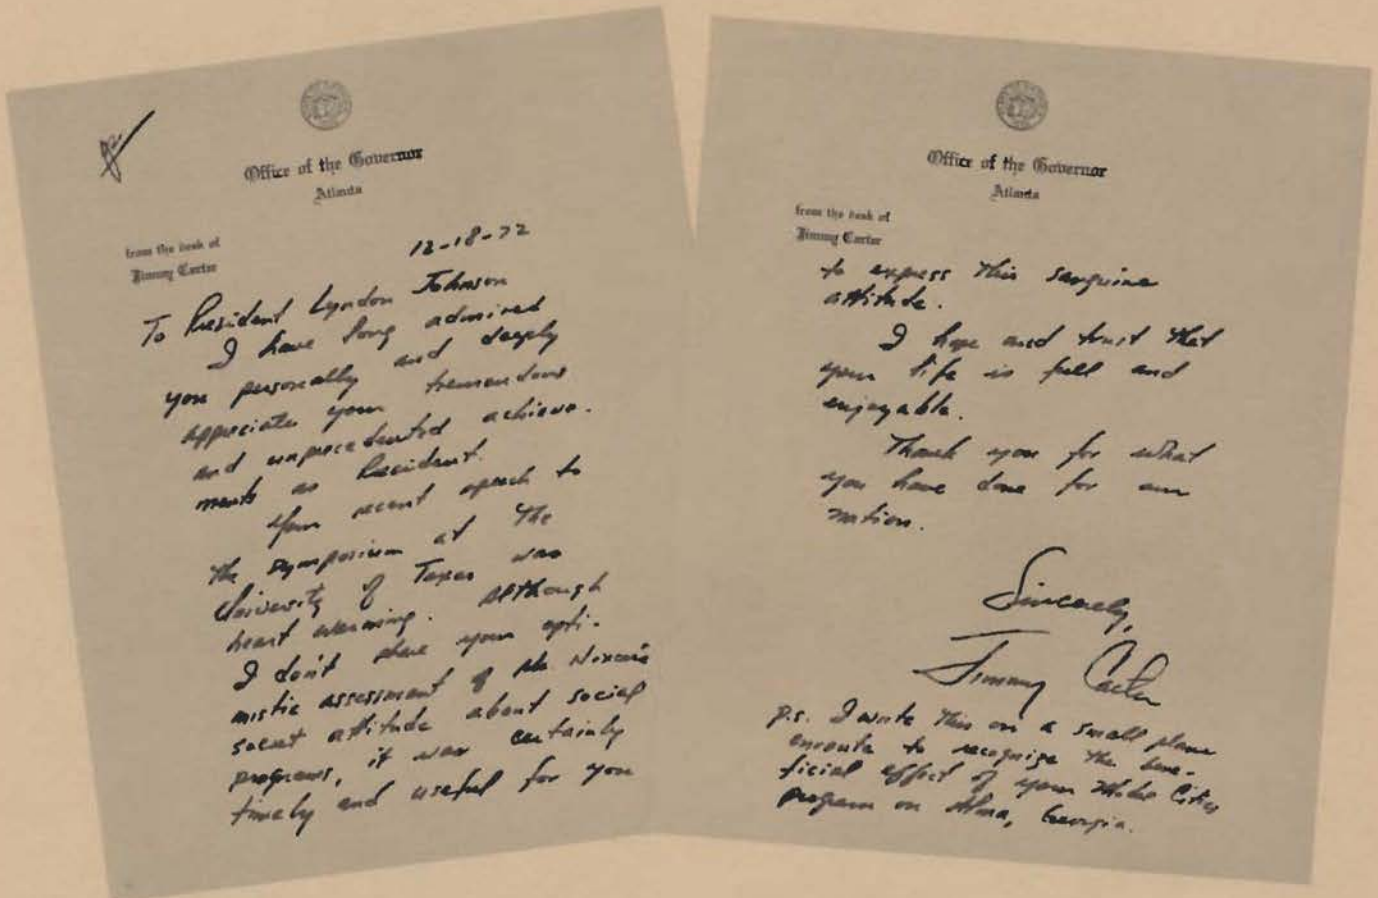 Office of the Governor
Atlanta
from the desk of
Jimmy Carter
12-18-72
To President Lyndon Johnson
I have long admired
you personally and deeply
appreciate your tremendous
and unprecedented achieve-
ments as President.
Your recent speech to
the symposium at the
University of Texas was
heart warming. Although
I don't share your opti-
mistic assessment of Mr Nixon's
secret attitude about social
programs, it was certainly
timely and useful for you
Office of the Governor
Atlanta
from the desk of
Jimmy Carter
to express this sanguine
attitude.
I hope and trust that
your life is full and
enjoyable.
Thank you for what
you have done for our
nation.
Sincerely,
Jimmy Carter
P.S. I wrote this on a small plane
enroute to recognize the bene-
ficial effect of your Model Cities
program on Alma, Georgia.